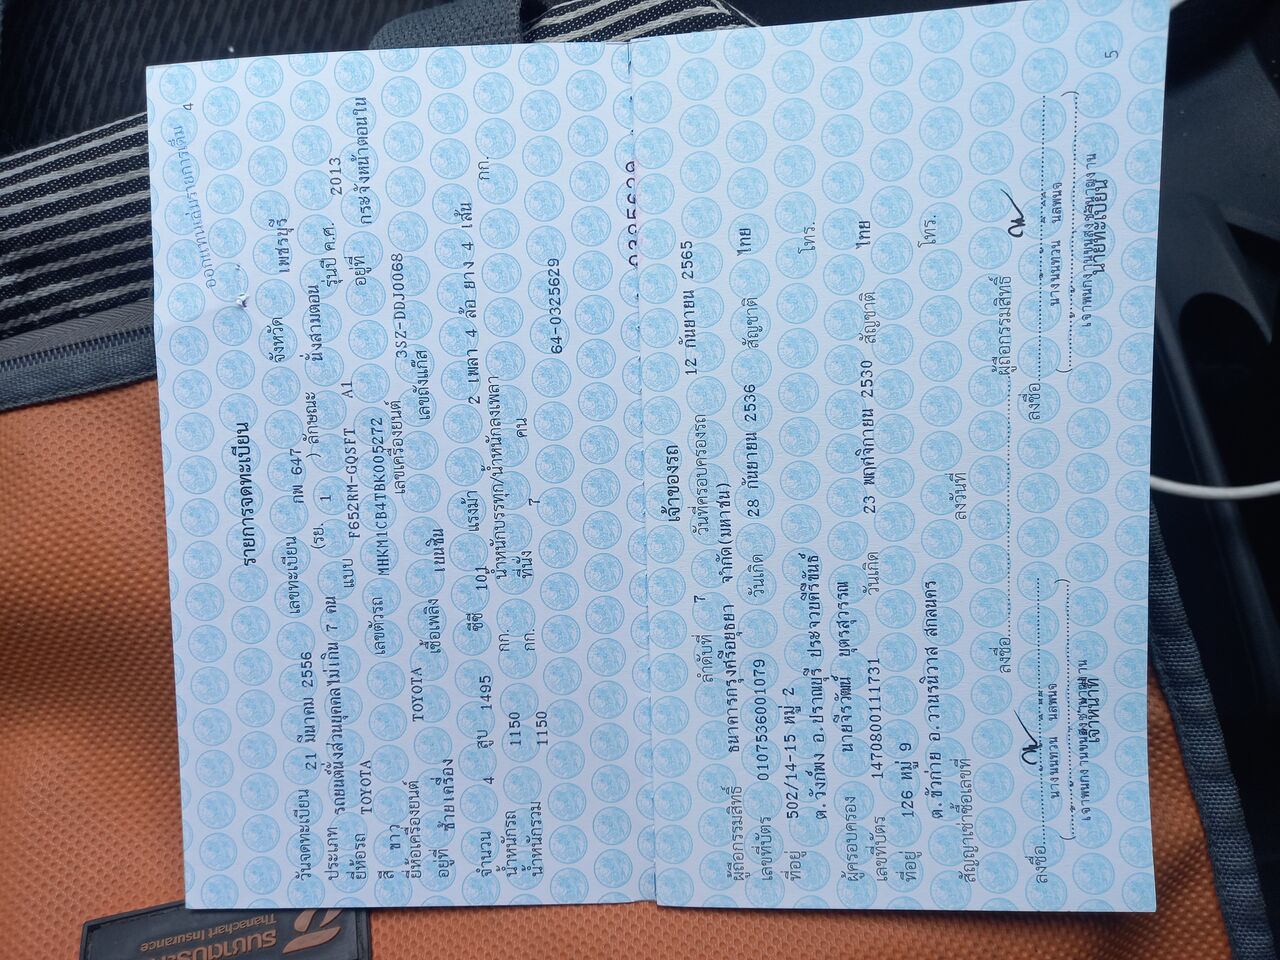 ออกแทนเล่มรายการเดิม 4
รายการจดทะเบียน
วันจดทะเบียน 21 มีนาคม 2556 เลขทะเบียน กพ 647 จังหวัด เพชรบุรี
ประเภท รถยนต์นั่งส่วนบุคคลไม่เกิน 7 คน (รย. 1 ) ลักษณะ นั่งสามตอน
ยี่ห้อรถ TOYOTA แบบ F652RM-GQSFT A1 รุ่นปี ค.ศ. 2013
สี ขาว เลขตัวรถ MHKM1CB4TBK005272 อยู่ที่ กระจังหน้าตอนใน
ยี่ห้อเครื่องยนต์ TOYOTA เลขเครื่องยนต์ 3SZ-DDJ0068
อยู่ที่ ซ้ายเครื่อง เชื้อเพลิง เบนซิน เลขถังแก๊ส
จำนวน 4 สูบ 1495 ซีซี 101 แรงม้า 2 เพลา 4 ล้อ ยาง 4 เส้น
น้ำหนักรถ 1150 กก. น้ำหนักบรรทุก/น้ำหนักลงเพลา กก.
น้ำหนักรวม 1150 กก. ที่นั่ง 7 คน
64-0325629
เจ้าของรถ
ลำดับที่ 7 วันที่ครอบครองรถ 12 กันยายน 2565
ผู้ถือกรรมสิทธิ์ ธนาคารกรุงศรีอยุธยา จำกัด(มหาชน)
เลขที่บัตร 0107536001079 วันเกิด 28 กันยายน 2536 สัญชาติ ไทย
ที่อยู่ 502/14-15 หมู่ 2
ต.วังก์พง อ.ปราณบุรี ประจวบคีรีขันธ์ โทร.
ผู้ครอบครอง นายจีรวัฒน์ บุตรสุวรรณ
เลขที่บัตร 1470800111731 วันเกิด 23 พฤศจิกายน 2530 สัญชาติ ไทย
ที่อยู่ 126 หมู่ 9
ต.ขัวก่าย อ.วานรนิวาส สกลนคร โทร.
สัญญาเช่าซื้อเลขที่ ลงวันที่
ลงชื่อ ผู้ถือกรรมสิทธิ์
ลงชื่อ ลงชื่อ
เจ้าหน้าที่ นายทะเบียน
5
ธนชาตประกันภัย
Thanachart Insurance